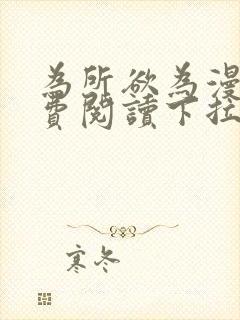 為所欲為漫
費閱讀下拉
寒冬